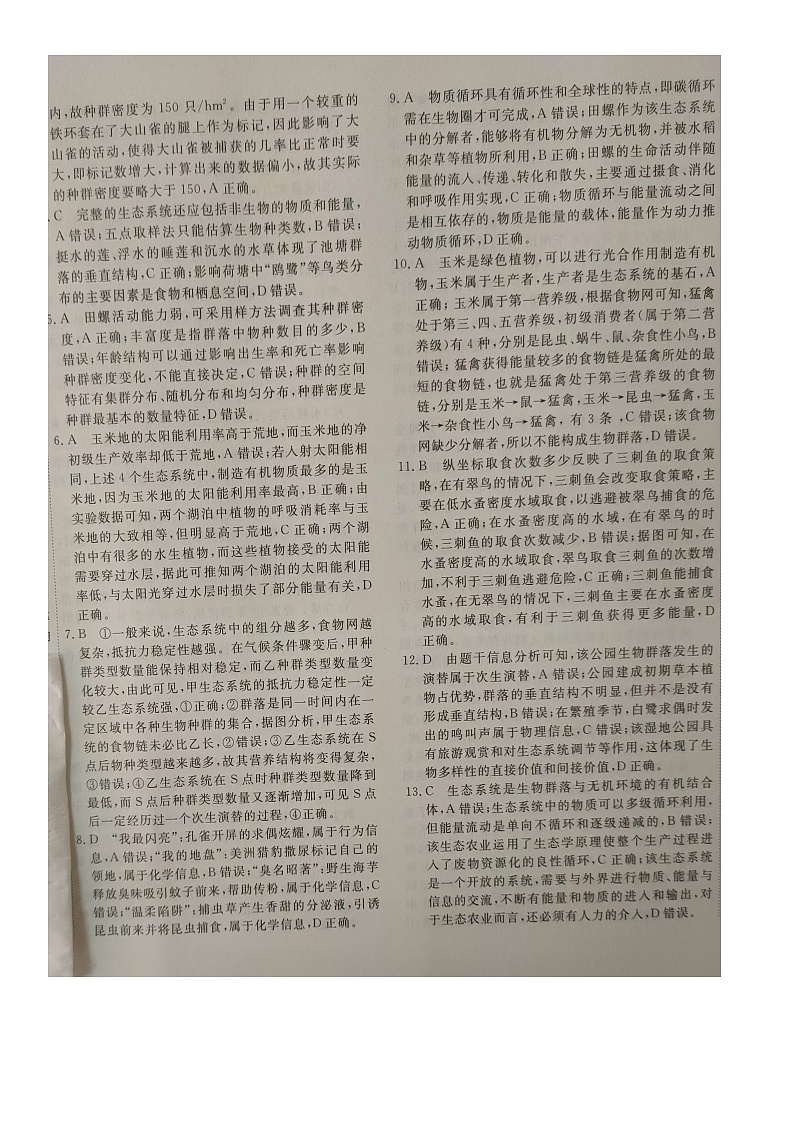 内,故种群密度为 150 只/hm²。由于用一个较重的
铁环套在了大山雀的腿上作为标记,因此影响了大
山雀的活动,使得大山雀被捕获的几率比正常时要
大,即标记数增大,计算出来的数据偏小,故其实际
的种群密度要略大于 150,A 正确。
C 完整的生态系统还应包括非生物的物质和能量,
A 错误;五点取样法只能估算生物种类数,B 错误;
挺水的莲、浮水的睡莲和沉水的水草体现了池塘群
落的垂直结构,C 正确;影响荷塘中“鸥鹭”等鸟类分
布的主要因素是食物和栖息空间,D 错误。
5. A 田螺活动能力弱,可采用样方法调查其种群密
度,A 正确;丰富度是指群落中物种数目的多少,B
错误;年龄结构可以通过影响出生率和死亡率影响
种群密度变化,不能直接决定,C 错误;种群的空间
特征有集群分布、随机分布和均匀分布,种群密度是
种群最基本的数量特征,D 错误。
6. A 玉米地的太阳能利用率高于荒地,而玉米地的净
初级生产效率却低于荒地,A 错误;若入射太阳能相
同,上述 4 个生态系统中,制造有机物质最多的是玉
米地,因为玉米地的太阳能利用率最高,B 正确;由
实验数据可知,两个湖泊中植物的呼吸消耗率与玉
米地的大致相等,但明显高于荒地,C 正确;两个湖
泊中有很多的水生植物,而这些植物接受的太阳能
需要穿过水层,据此可推知两个湖泊的太阳能利用
率低,与太阳光穿过水层时损失了部分能量有关,D
正确。
7. B ①一般来说,生态系统中的组分越多,食物网越
复杂,抵抗力稳定性越强。在气候条件骤变后,甲种
群类型数量能保持相对稳定,而乙种群类型数量变
化较大,由此可见,甲生态系统的抵抗力稳定性一定
较乙生态系统强,①正确;②群落是同一时间内在一
定区域中各种生物种群的集合,据图分析,甲生态系
统的食物链未必比乙长,②错误;③乙生态系统在 S
点后物种类型越来越多,故其营养结构将变得复杂,
③错误;④乙生态系统在 S 点时种群类型数量降到
最低,而 S 点后种群类型数量又逐渐增加,可见 S 点
后一定经历过一个次生演替的过程,④正确。
8. D “我最闪亮”:孔雀开屏的求偶炫耀,属于行为信
息,A 错误;“我的地盘”:美洲猎豹撒尿标记自己的
领地,属于化学信息,B 错误;“臭名昭著”:野生海芋
释放臭味吸引蚊子前来,帮助传粉,属于化学信息,C
错误;“温柔陷阱”:捕虫草产生香甜的分泌液,引诱
昆虫前来并将昆虫捕食,属于化学信息,D 正确。
9. A 物质循环具有循环性和全球性的特点,即碳循环
需在生物圈才可完成,A 错误;田螺作为该生态系统
中的分解者,能够将有机物分解为无机物,并被水稻
和杂草等植物所利用,B 正确;田螺的生命活动伴随
能量的流入、传递、转化和散失,主要通过摄食、消化
和呼吸作用实现,C 正确;物质循环与能量流动之间
是相互依存的,物质是能量的载体,能量作为动力推
动物质循环,D 正确。
10. A 玉米是绿色植物,可以进行光合作用制造有机
物,玉米属于生产者,生产者是生态系统的基石,A
正确;玉米属于第一营养级,根据食物网可知,猛禽
处于第三、四、五营养级,初级消费者(属于第二营
养级)有 4 种,分别是昆虫、蜗牛、鼠、杂食性小鸟,B
错误;猛禽获得能量较多的食物链是猛禽所处的最
短的食物链,也就是猛禽处于第三营养级的食物
链,分别是玉米→鼠→猛禽,玉米→昆虫→猛禽,玉
米→杂食性小鸟→猛禽,有 3 条,C 错误;该食物
网缺少分解者,所以不能构成生物群落,D 错误。
11. B 纵坐标取食次数多少反映了三刺鱼的取食策
略,在有翠鸟的情况下,三刺鱼会改变取食策略,主
要在低水蚤密度水域取食,以逃避被翠鸟捕食的危
险,A 正确;在水蚤密度高的水域,在有翠鸟的时
候,三刺鱼的取食次数减少,B 错误;据图可知,在
水蚤密度高的水域取食,翠鸟取食三刺鱼的次数增
加,不利于三刺鱼逃避危险,C 正确;三刺鱼能捕食
水蚤,在无翠鸟的情况下,三刺鱼主要在水蚤密度
高的水域取食,有利于三刺鱼获得更多能量,D
正确。
12. D 由题干信息分析可知,该公园生物群落发生的
演替属于次生演替,A 错误;公园建成初期草本植
物占优势,群落的垂直结构不明显,但并不是没有
形成垂直结构,B 错误;在繁殖季节,白鹭求偶时发
出的鸣叫声属于物理信息,C 错误;该湿地公园具
有旅游观赏和对生态系统调节等作用,这体现了生
物多样性的直接价值和间接价值,D 正确。
13. C 生态系统是生物群落与无机环境的有机结合
体,A 错误;生态系统中的物质可以多级循环利用,
但能量流动是单向不循环和逐级递减的,B 错误;
该生态农业运用了生态学原理使整个生产过程进
入了废物资源化的良性循环,C 正确;该生态系统
是一个开放的系统,需要与外界进行物质、能量与
信息的交流,不断有能量和物质的进入和输出,对
于生态农业而言,还必须有人力的介入,D 错误。